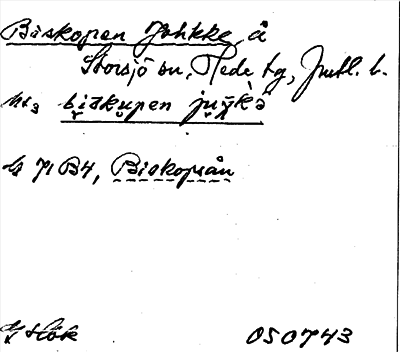 Biskopen Johkke, å
Storsjö sn, Hede tg, Jmtl. l.
bi̯skupen ju̯χ́kè
71 B4, Biskopsån
050743